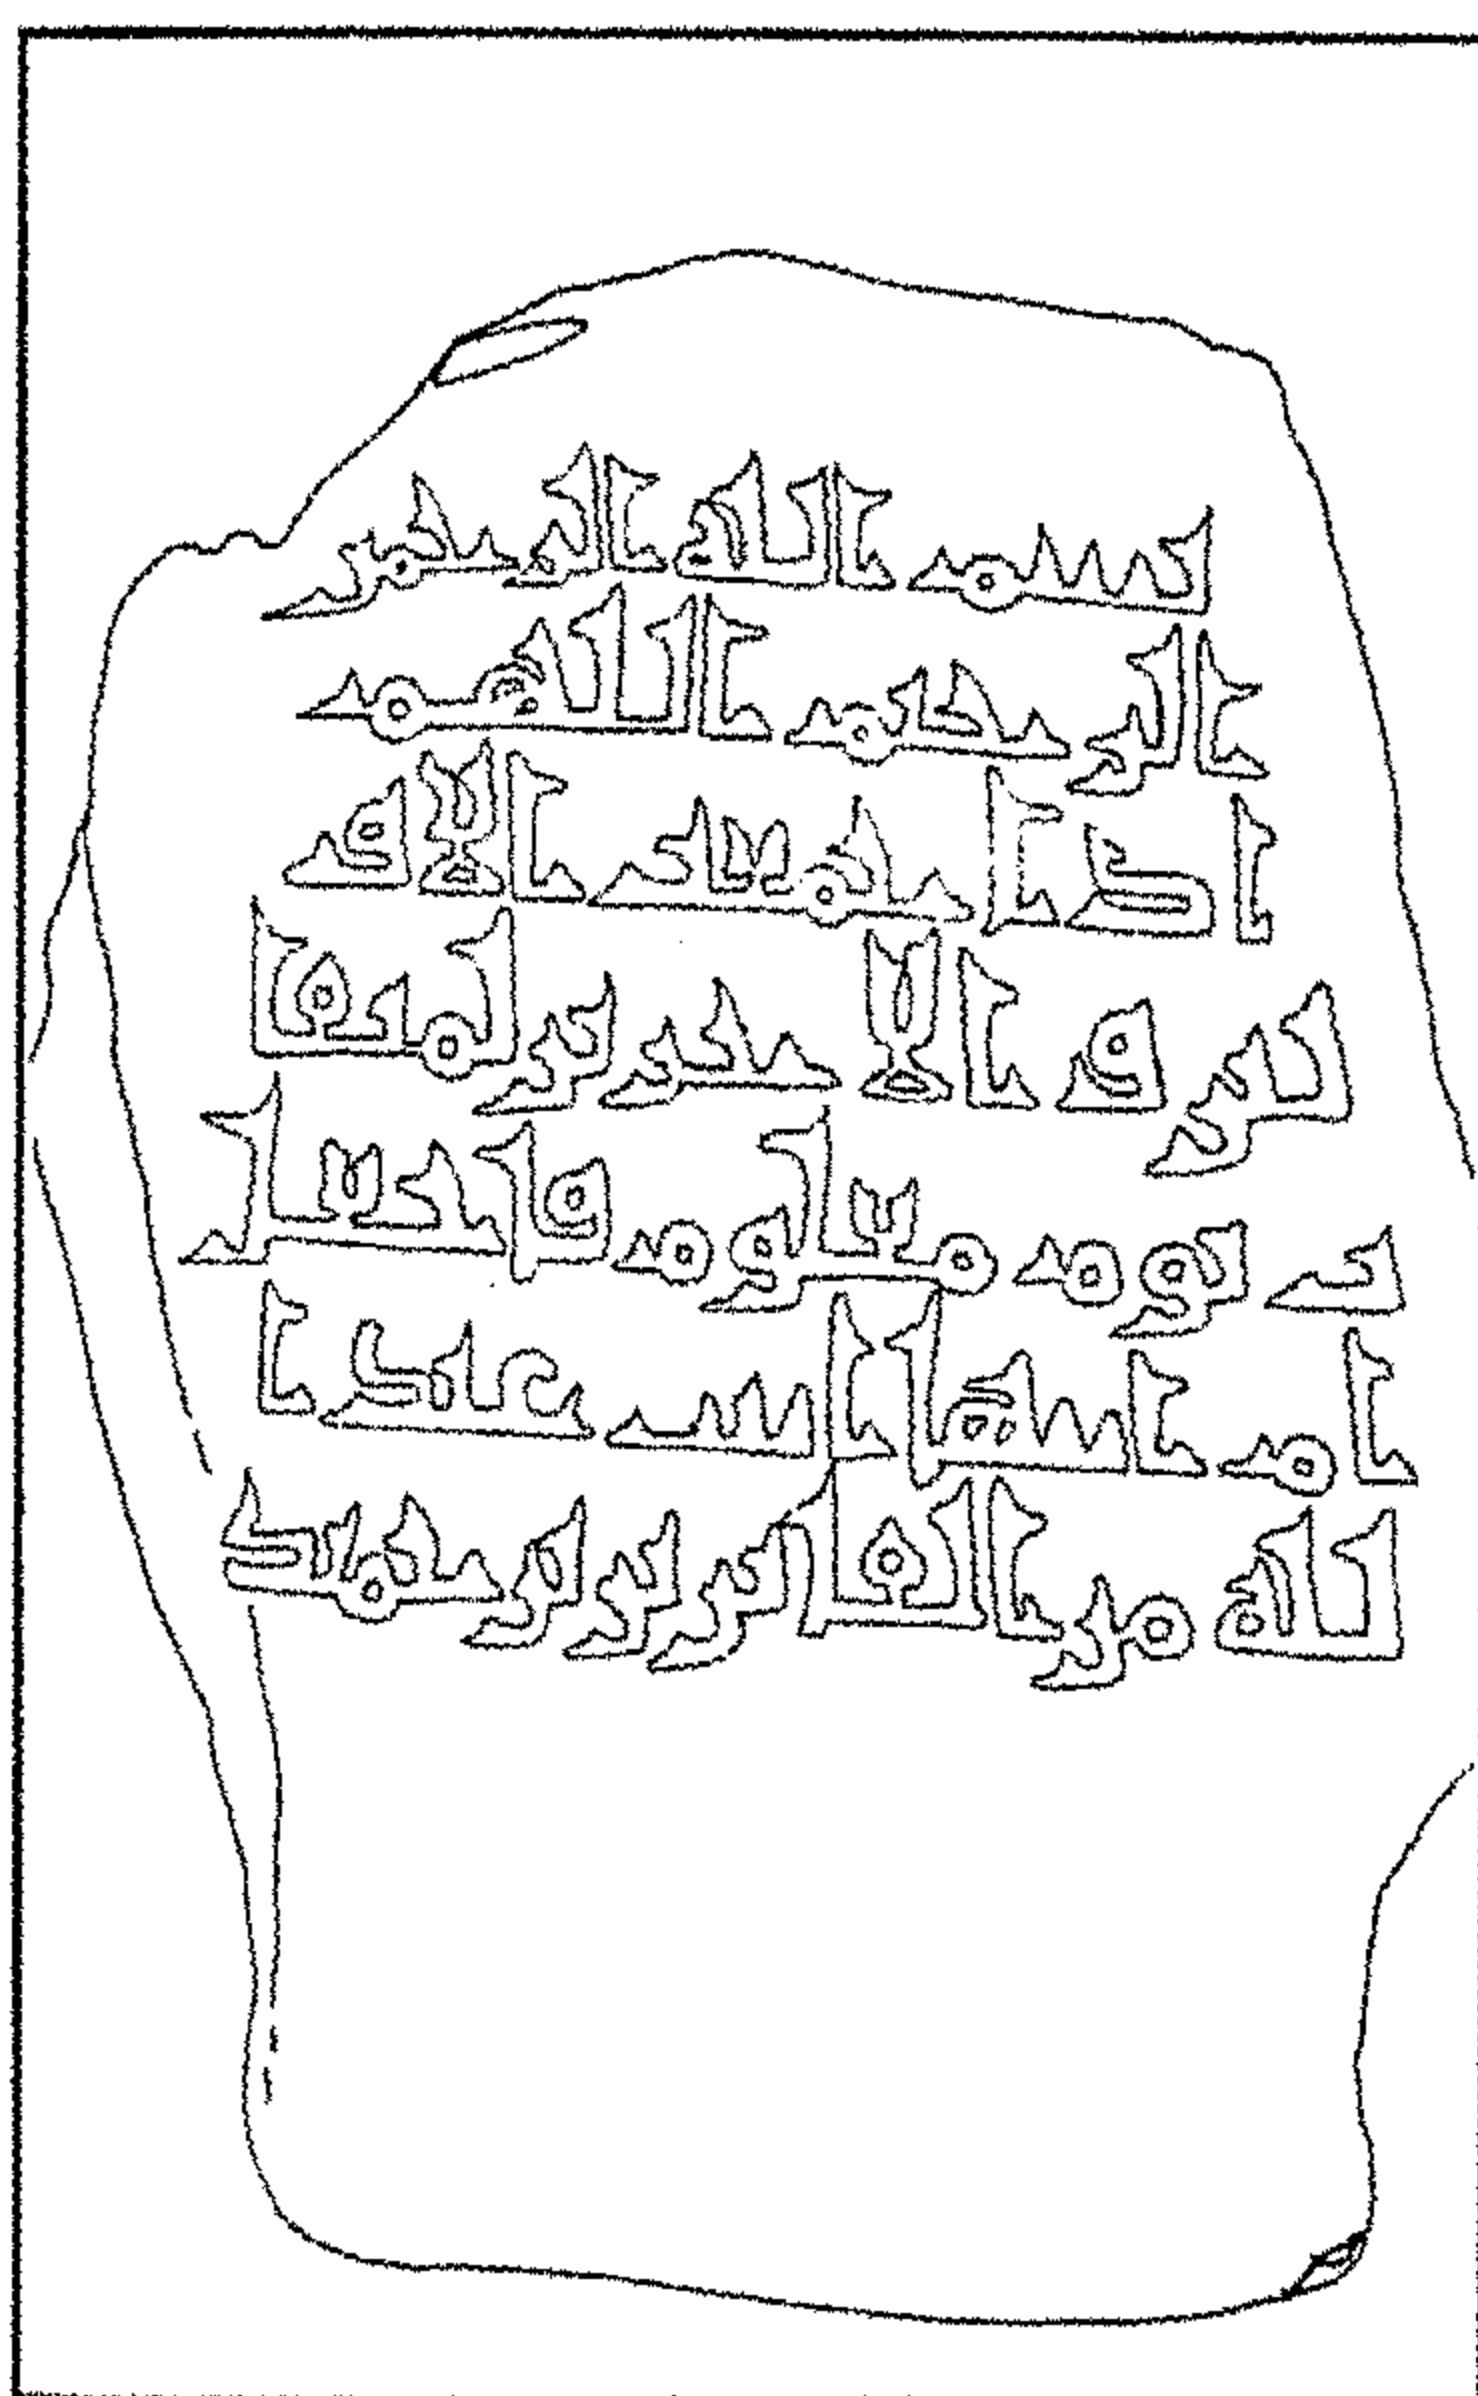 بسم الله الرحمن
الرحيم اللهم
اذا جمعت الاو
لين و الاخرين لميقا
ت يوم معلوم فاجعل
ام ابنت عبيد ا
لله من الفايزين برحمتك